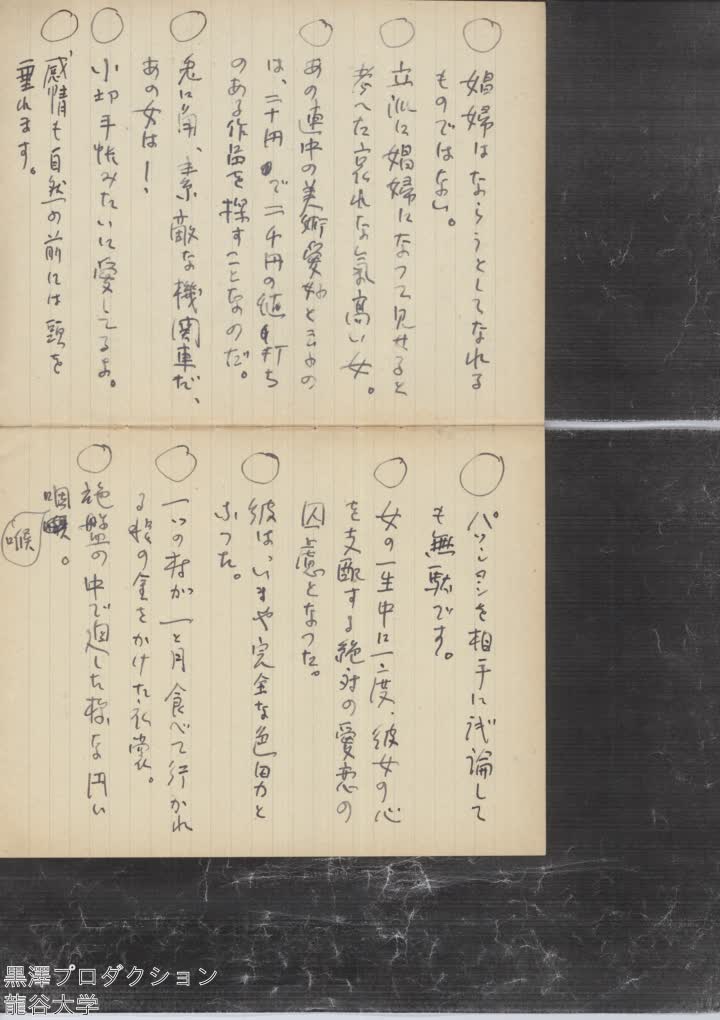 ○ 娼婦はならうとしてなれる
ものではない。
○ 立派に娼婦になつて見せると
考へた哀れな気高い女。
○ あの連中の美術愛好と云ふの
は、二十円で二千円の値打ち
のある作品を探すことなのだ。
○ 兎に角、素敵な機関車だ、
あの女は！
○ 小切手帖みたいに愛してるよ。
○ 感情も自然の前には頭を
垂れます。
○ パッションを相手に議論して
も無駄です。
○ 女の一生中に一度、彼女の心
を支配する絶対の愛恋の
囚虜となつた。
○ 彼は、いまや完全な色男と
なつた。
○ 一つの村が一と月食べて行かれ
る程の金をかけた衣裳。
○ 旋盤の中で廻した様な円い
咽喉。
喉
黒澤プロダクション
龍谷大学